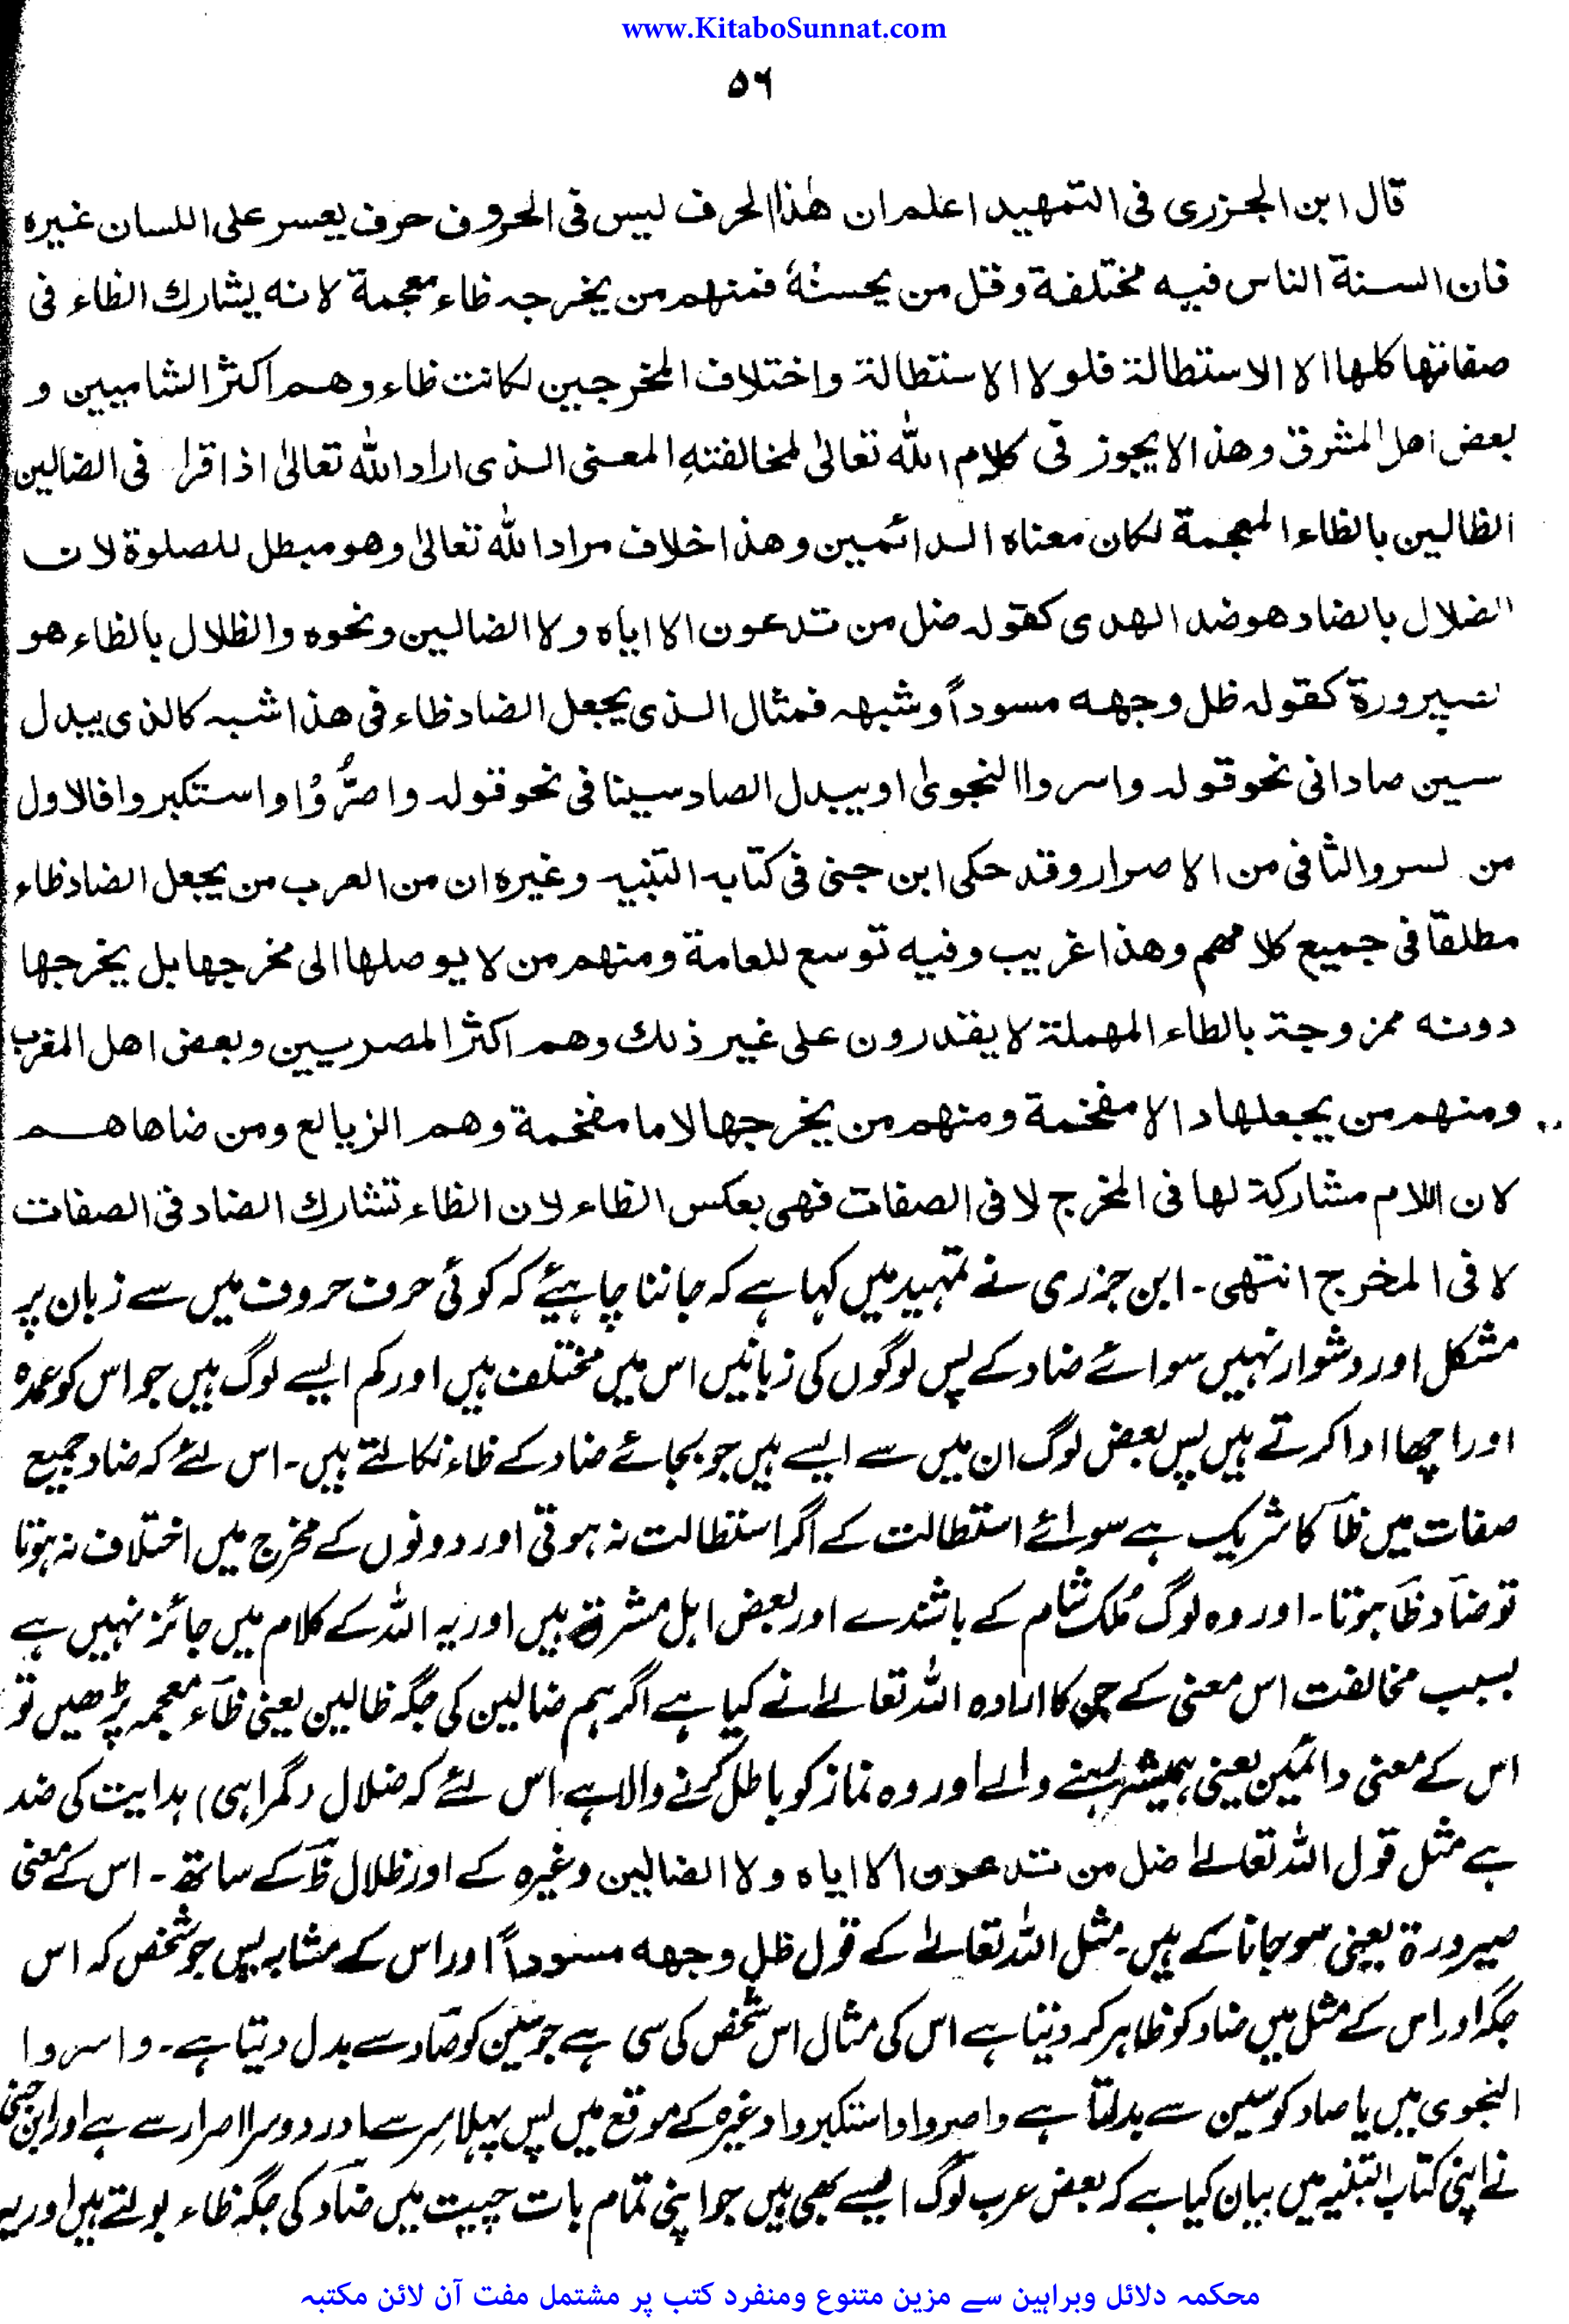 www.KitaboSunnat.com
۵۶
قال ابن الجزری فی التمهید اعلم ان هٰذا الحرف لیس فی الحروف حرف یعسر علی اللسان غیره
فان السنة الناس فیه مختلفة وقل من یحسنهٗ فمنهم من یخرجه ظاء معجمة لانه یشارك الظاء فی
صفاتها کلها الا الاستطالة فلولا الاستطالة واختلاف المخرجین لکانت ظاء وهم اکثر الشامیین و
بعض اهل المشرق وهذا لایجوز فی کلام الله تعالیٰ لمخالفتهِ المعنی الذی اراد الله تعالیٰ اذا قرا فی الضالین
الظالین بالظاء المعجمة لکان معناه الدائمین وهذا خلاف مراد الله تعالیٰ وهو مبطل للصلوة لان
الضلال بالضاد هو ضد الهدی کقوله ضل من تدعون الا ایاه ولا الضالین ونحوه والظلال بالظاء هو
لصیرورة کقوله ظل وجهه مسوداً وشبهه فمثال الذی یجعل الضاد ظاء فی هذا شبه کالذی یبدل
سین صادا فی نحو قوله واسروا النجویٰ او یبدل الصاد سینا فی نحو قوله واصرُّوْا واستکبروا فالاول
من لسر والثانی من الاصرار وقد حکی ابن جنی فی کتابه التنبیه وغیره ان من العرب من یجعل الضاد ظاء
مطلقا فی جمیع کلامهم وهذا غریب وفیه توسع للعامة ومنهم من لا یوصلها الی مخرجها بل یخرجها
دونه ممزوجة بالطاء المهملة لا یقدرون علی غیر ذلك وهم اکثر المصریین وبعض اهل المغرب
ومنهم من یجعلها دالا مفخمة ومنهم من یخرجها لاما مفخمة وهم الزیالع ومن ضاهاهم
لان اللام مشارکة لها فی المخرج لا فی الصفات فهی بعکس الظاء لان الظاء تشارك الضاد فی الصفات
لا فی المخرج انتهی۔ ابن جزری نے تمہید میں کہا ہے کہ جاننا چاہیئے کہ کوئی حرف حروف میں سے زبان پر
مشکل اور دشوار نہیں سوائے ضاد کے پس لوگوں کی زبانیں اس میں مختلف ہیں اور کم ایسے لوگ ہیں جو اس کو عمدہ
اور اچھا ادا کرتے ہیں پس بعض لوگ ان میں سے ایسے ہیں جو بجائے ضاد کے ظاء نکالتے ہیں۔ اس لئے کہ ضاد جمیع
صفات میں ظآ کا شریک ہے سوائے استطالت کے اگر استطالت نہ ہوتی اور دونوں کے مخرج میں اختلاف نہ ہوتا
تو ضآد ظآ ہوتا۔ اور وہ لوگ مُلک شام کے باشندے اور بعض اہل مشرق ہیں اور یہ اللہ کے کلام میں جائز نہیں ہے
بسبب مخالفت اس معنی کے جن کا ارادہ اللہ تعالےٰ نے کیا ہے اگر ہم ضالین کی جگہ ظالین یعنی ظآء معجمہ پڑھیں تو
اس کے معنی دائمین یعنی ہمیشہ رہنے والے اور وہ نماز کو باطل کرنے والا ہے، اس لئے کہ ضلال (گمراہی) ہدایت کی ضد
ہے مثل قول اللہ تعالےٰ ضل من تدعون الا ایاه ولا الضالین وغیرہ کے اور ظلال ظآ کے ساتھ۔ اس کے معنی
صیرورة یعنی ہوجانا کے ہیں۔ مثل اللہ تعالےٰ کے قول ظل وجهه مسوداً اور اس کے مشابہ پس جو شخص کہ اس
جگہ اور اس کے مثل میں ضاد کو ظاہر کر دیتا ہے اس کی مثال اس شخص کی سی ہے جو سین کو صآد سے بدل دیتا ہے۔ واسروا
النجوی میں یا صاد کو سین سے بدلتا ہے واصروا واستکبروا وغیرہ کے موقع میں پس پہلا سِر سے اور دوسرا اصرار سے ہے اور ابن جنی
نے اپنی کتاب التنبیہ میں بیان کیا ہے کہ بعض عرب لوگ ایسے بھی ہیں جو اپنی تمام بات چیت میں ضآد کی جگہ ظاء بولتے ہیں اور یہ
محکمہ دلائل وبراہین سے مزین متنوع ومنفرد کتب پر مشتمل مفت آن لائن مکتبہ